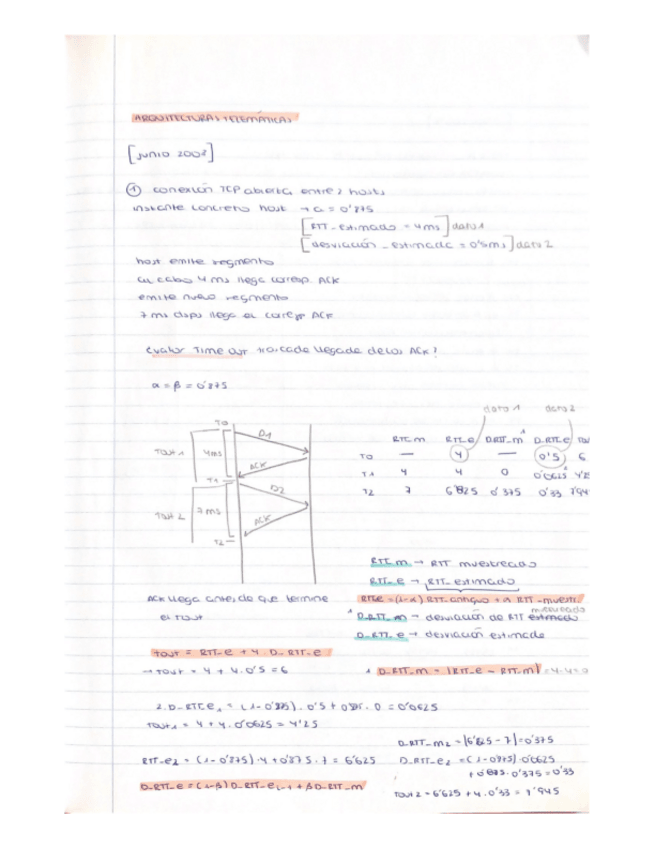 ARQUITECTURAS TELEMÁTICAS
[JUNIO 2002]
① conexión TCP abierta entre 2 hosts
instante concreto host → α = 0'875
[RTT_estimado = 4ms] dato 1
[desviación_estimada = 0'5ms] dato 2
host emite segmento
al cabo 4 ms llega corresp. ACK
emite nuevo segmento
7 ms llega el ACK
evaluar Time out tras cada llegada de los ACK?
α = β = 0'875
dato 1 dato 2
RTT_m RTT_e D_RTT_m¹ D_RTT_e
T0 — 4 — 0'5 6
T1 4 4 0 0'0625
T2 7 6'625 0'375 0'33 7'94
T0
D1
TOUT 1 4ms
ACK
T1
D2
TOUT 2 7 ms
ACK
T2
RTT_m → RTT muestreado
RTT_e → RTT_estimado
RTTe = (1-α) RTT_antiguo + α RTT_muestr.
ACK llega antes de que termine
el TOUT
muestreado
¹ D_RTT_m → desviación de RTT estimado
D_RTT_e → desviación estimada
TOUT = RTT_e + 4 · D_RTT_e
→ TOUT = 4 + 4 · 0'5 = 6
¹ D_RTT_m = |RTT_e − RTT_m| = 4-4=0
2. D_RTTe₁ = (1-0'875) · 0'5 + 0'875 · 0 = 0'0625
TOUT₁ = 4 + 4 · 0'0625 = 4'25
D_RTT_m₂ = |6'625 - 7| = 0'375
RTT_e₂ = (1-0'875) · 4 + 0'875 · 7 = 6'625
D_RTT_e₂ = (1-0'875) · 0'0625
+ 0'875 · 0'375 = 0'33
D_RTT_e = (1-β) D_RTT_e_i-1 + β D_RTT_m
TOUT 2 = 6'625 + 4 · 0'33 = 7'945